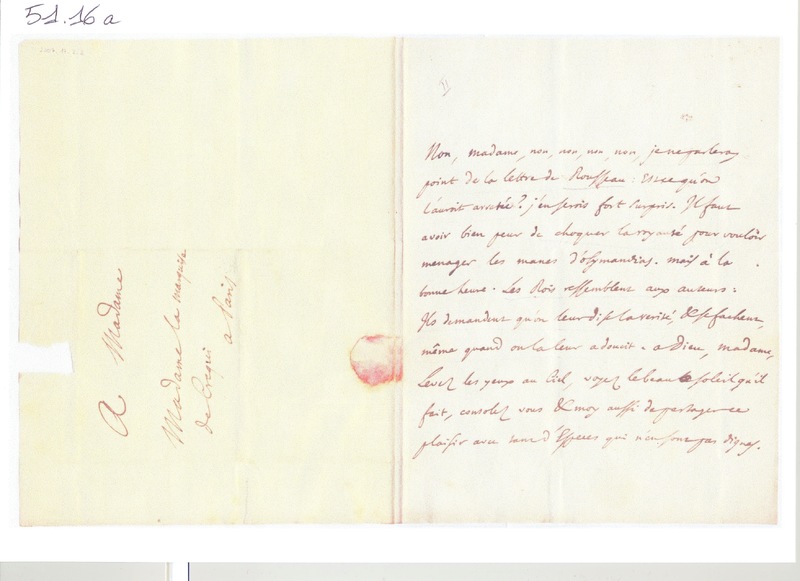 51.16a
A Madame
Madame la marquise
de Créqui
a Paris
II
Non, madame, non, non, non, non, je ne parleray
point de la lettre de Rousseau : est ce qu'on
l'auroit arretée? j'en serois fort surpris. Il faut
avoir bien peur de choquer la royauté pour vouloir
menager les manes d'osymandias. mais à la
bonne heure. Les Rois ressemblent aux auteurs :
Ils demandent qu'on leur dise la verité, & se fachent,
même quand on la leur adoucit. a Dieu, madame,
Levez les yeux au Ciel, voyez le beau soleil qu'il
fait, consolez vous & moy aussi de partager ce
plaisir avec tant d'Especes qui n'en sont pas dignes.